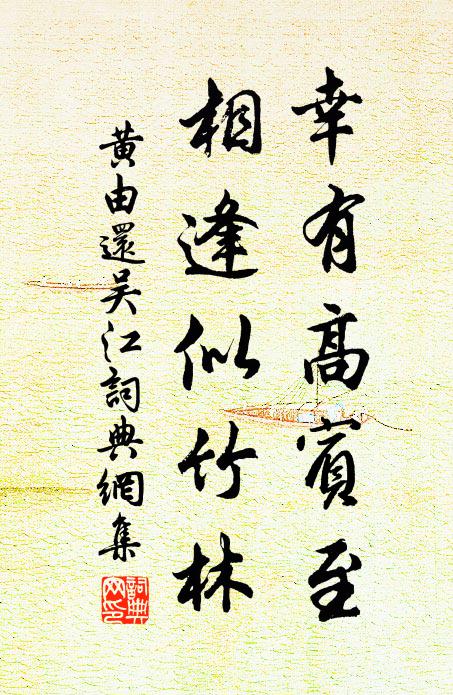 幸有高賓至
相逢似竹林
黃由還吳江詞典網集
詞典網印